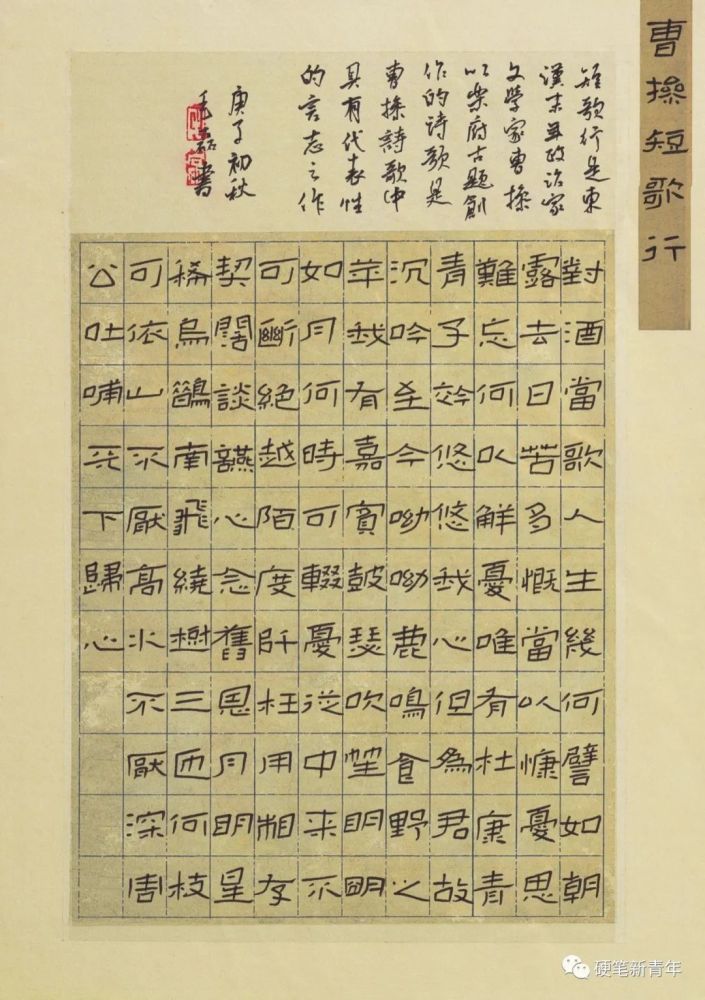 曹操短歌行
短歌行是東
漢末年政治家
文學家曹操
以樂府古題創
作的诗歌是
曹操詩歌中
具有代表性
的言志之作
庚子初秋
毛磊書
對酒當歌人生幾何譬如朝
露去日苦多慨當以慷憂思
難忘何以解憂唯有杜康青
青子衿悠悠我心但為君故
沉吟至今呦呦鹿鳴食野之
苹我有嘉賓鼓瑟吹笙明明
如月何時可輟憂從中来不
可斷絕越陌度阡枉用相存
契闊談讌心念舊恩月明星
稀烏鵲南飛繞樹三匝何枝
可依山不厭高水不厭深周
公吐哺天下歸心
硬笔新青年